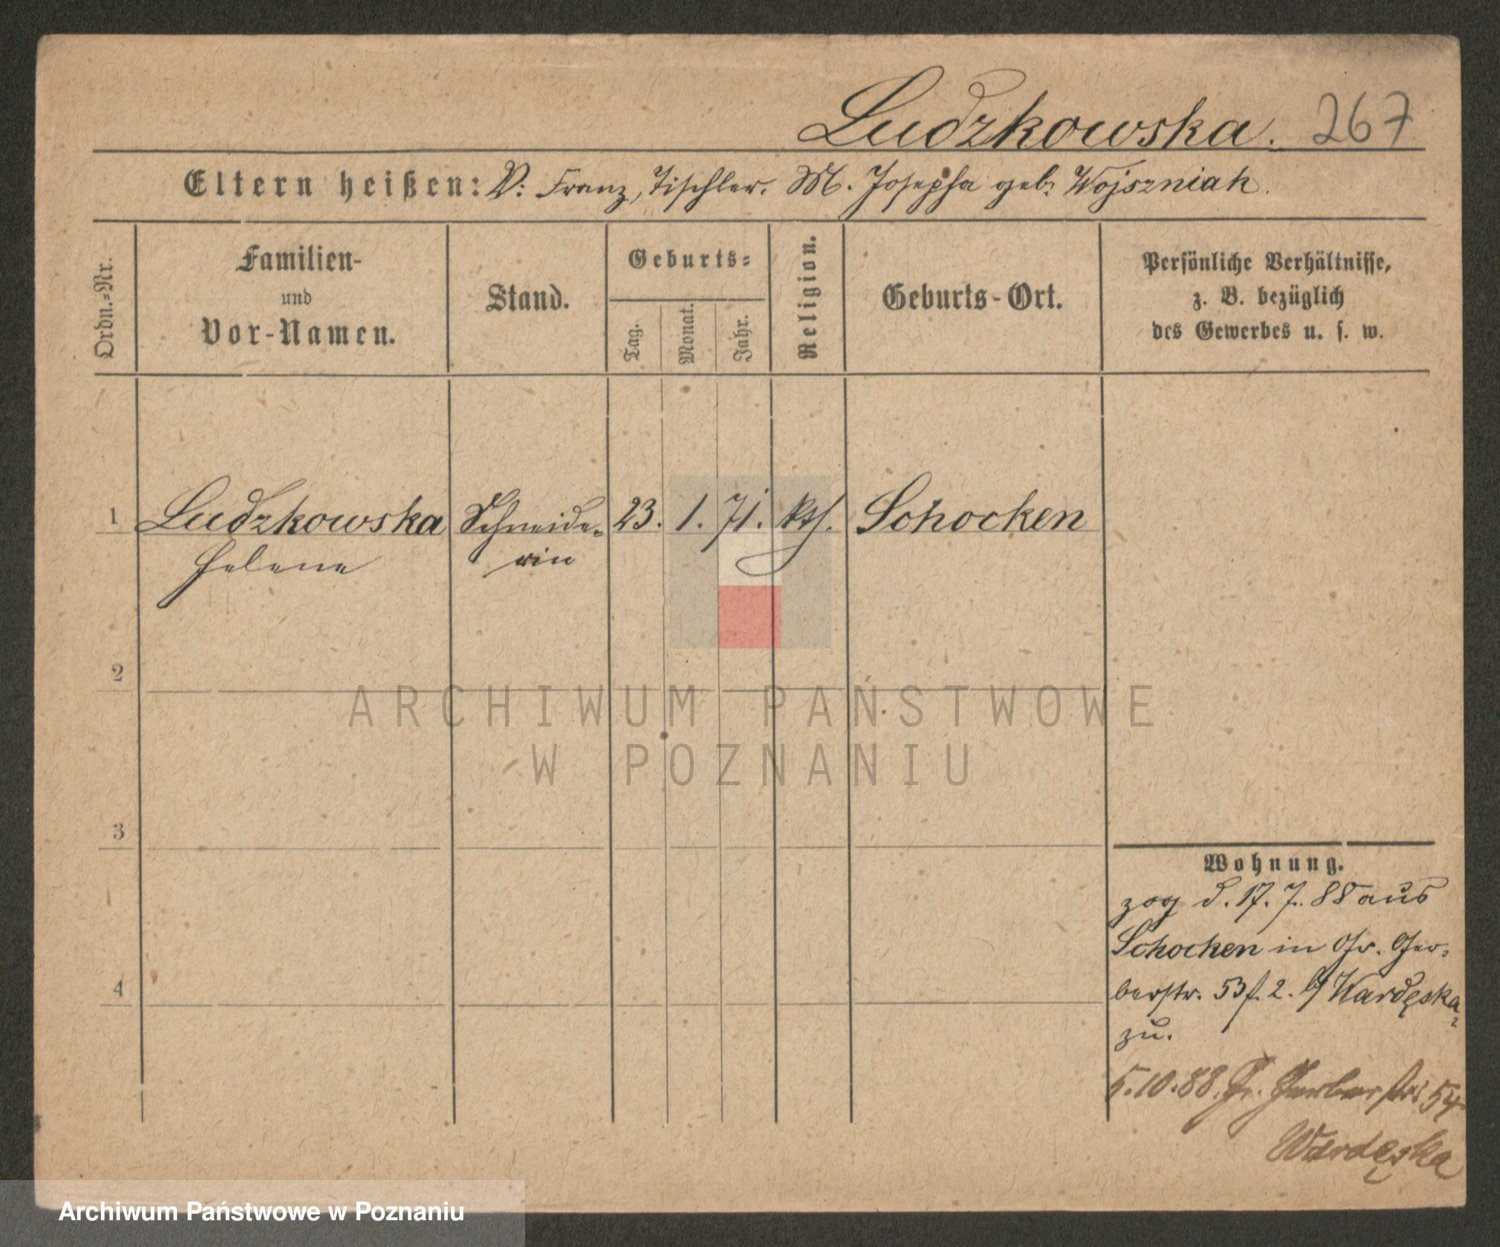 Ludzkowska. 267
Eltern heißen: V: Franz, Tischler. M. Josepha geb. Wojszniak.
Ordn.-Nr.
Familien-
und
Vor-Namen.
Stand.
Geburts-
Tag.
Monat.
Jahr.
Religion.
Geburts-Ort.
Persönliche Verhältnisse,
z. B. bezüglich
des Gewerbes u. s. w.
1 Ludzkowska Schneide- 23. 1. 71. kth. Schocken
Helene rin
2
ARCHIWUM PAŃSTWOWE
W POZNANIU
3
Wohnung.
zog d. 17. 7. 88 aus
Schocken in Gr. Ger-
berstr. 53 2. Wardęska
zu.
5.10.88. Gr. Gerberstr 54
Wardęska
4
Archiwum Państwowe w Poznaniu